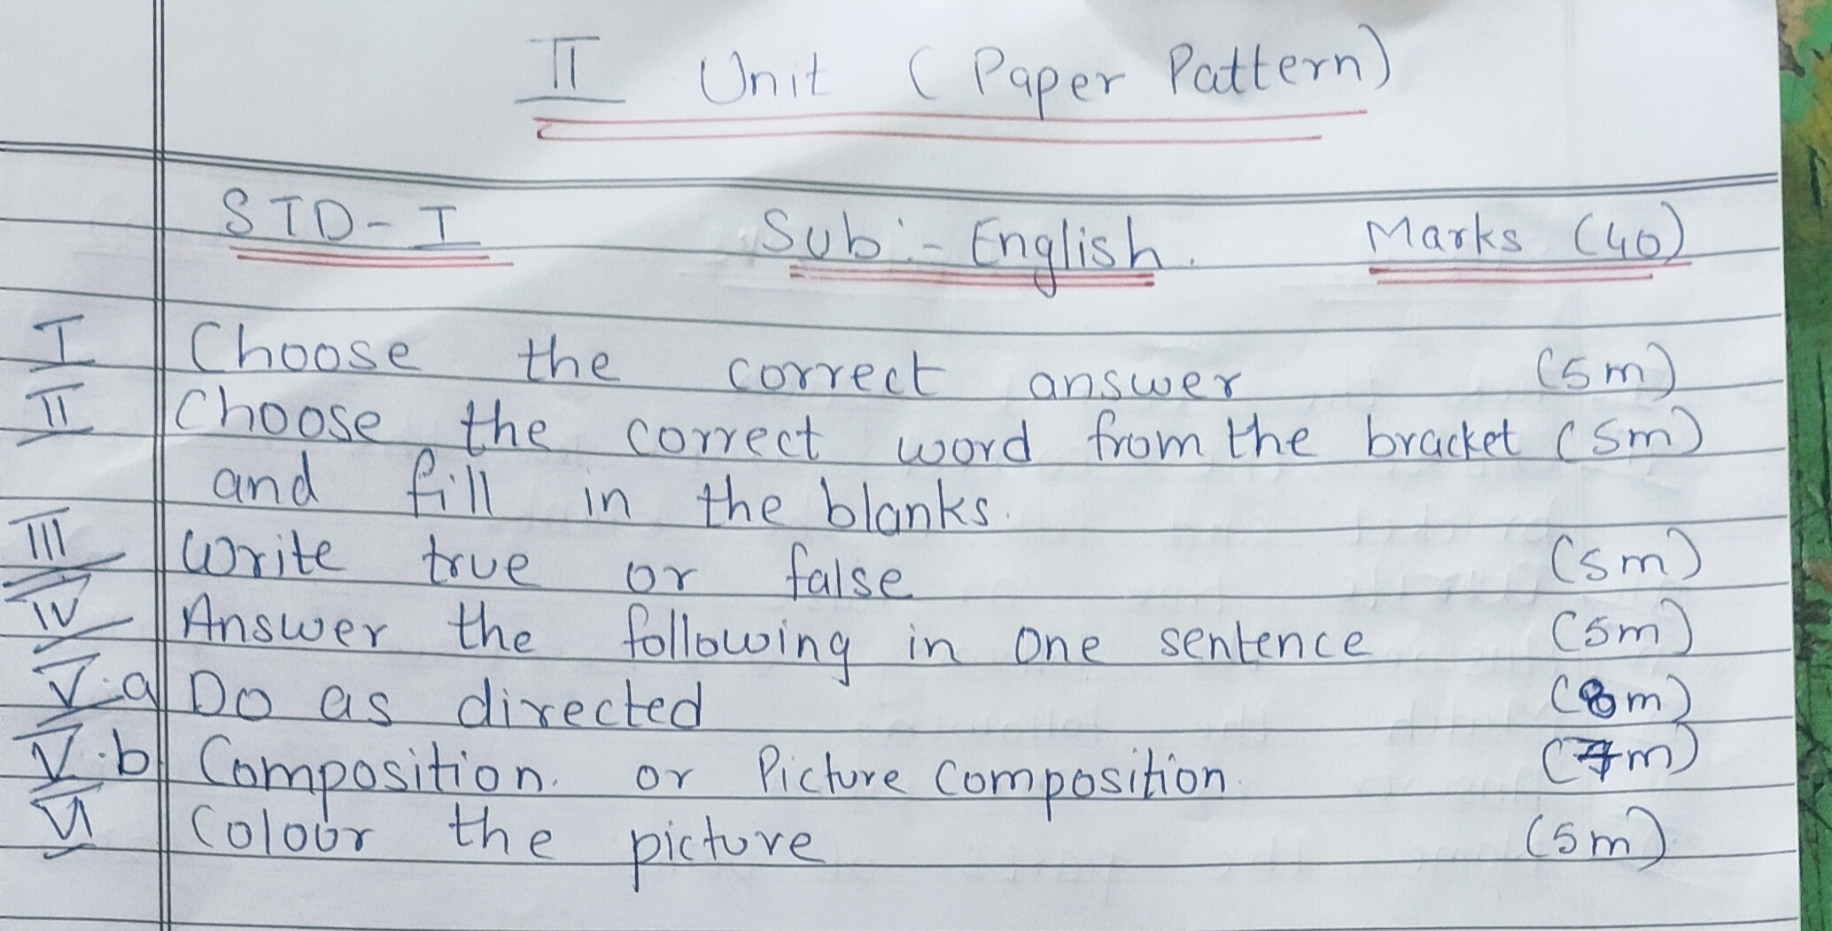 II Unit (Paper Pattern)
STD - I Sub :- English. Marks (40)
I Choose the correct answer (5m)
II Choose the correct word from the bracket (5m)
and fill in the blanks.
III Write true or false (5m)
IV Answer the following in one sentence (5m)
V.a Do as directed (8m)
V.b Composition. or Picture Composition. (7m)
VI Colour the picture (5m)